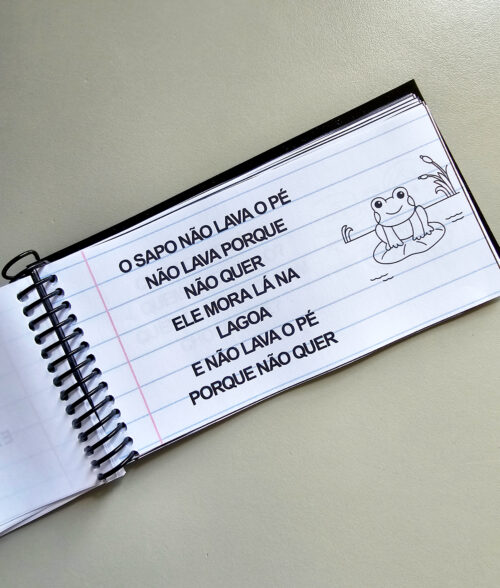 O SAPO NÃO LAVA O PÉ
NÃO LAVA PORQUE
NÃO QUER
ELE MORA LÁ NA
LAGOA
E NÃO LAVA O PÉ
PORQUE NÃO QUER